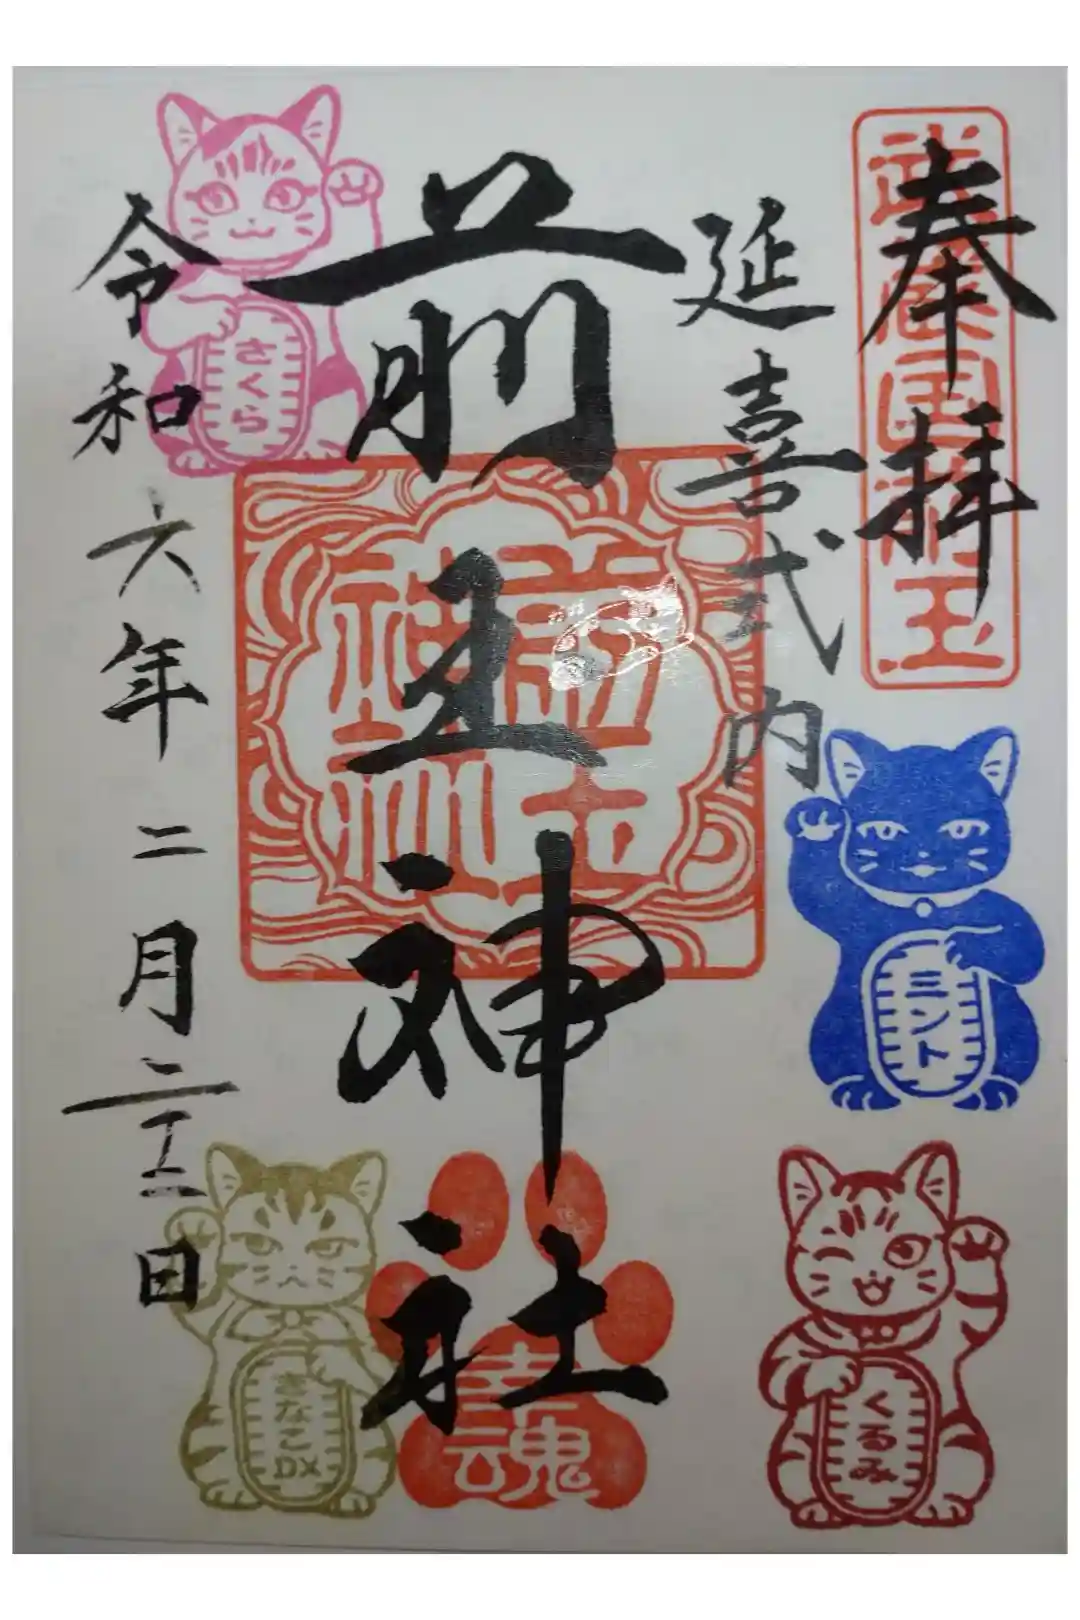 奉拝
武蔵国前玉
延喜式内
前玉神社
前玉
神社
令和六年二月二十二日
さくら
ミント
きなこ
DX
幸魂
くるみ